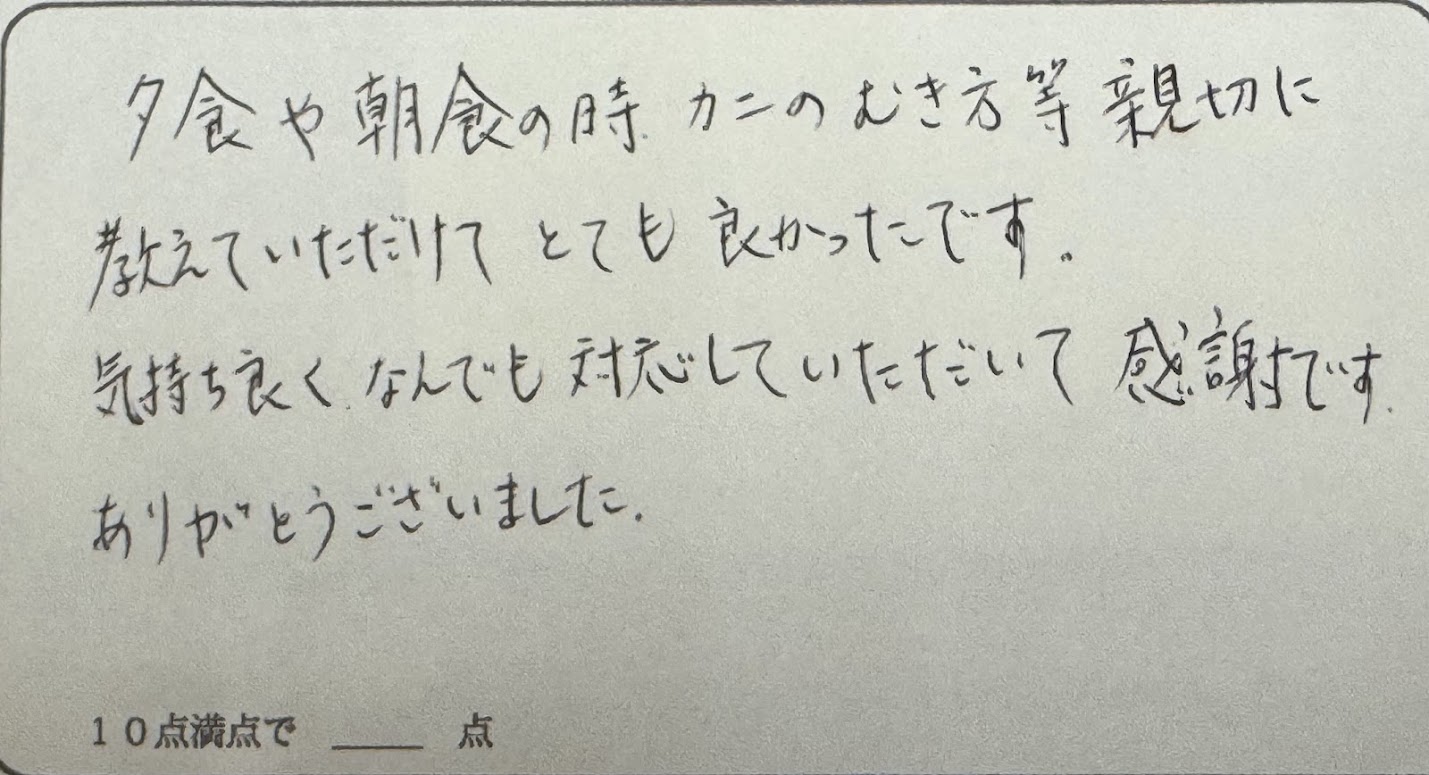 夕食や朝食の時、カニのむき方等 親切に
教えていただけて とても 良かったです。
気持ち良く、なんでも 対応していただいて 感謝です。
ありがとうございました。
10点満点で ____ 点